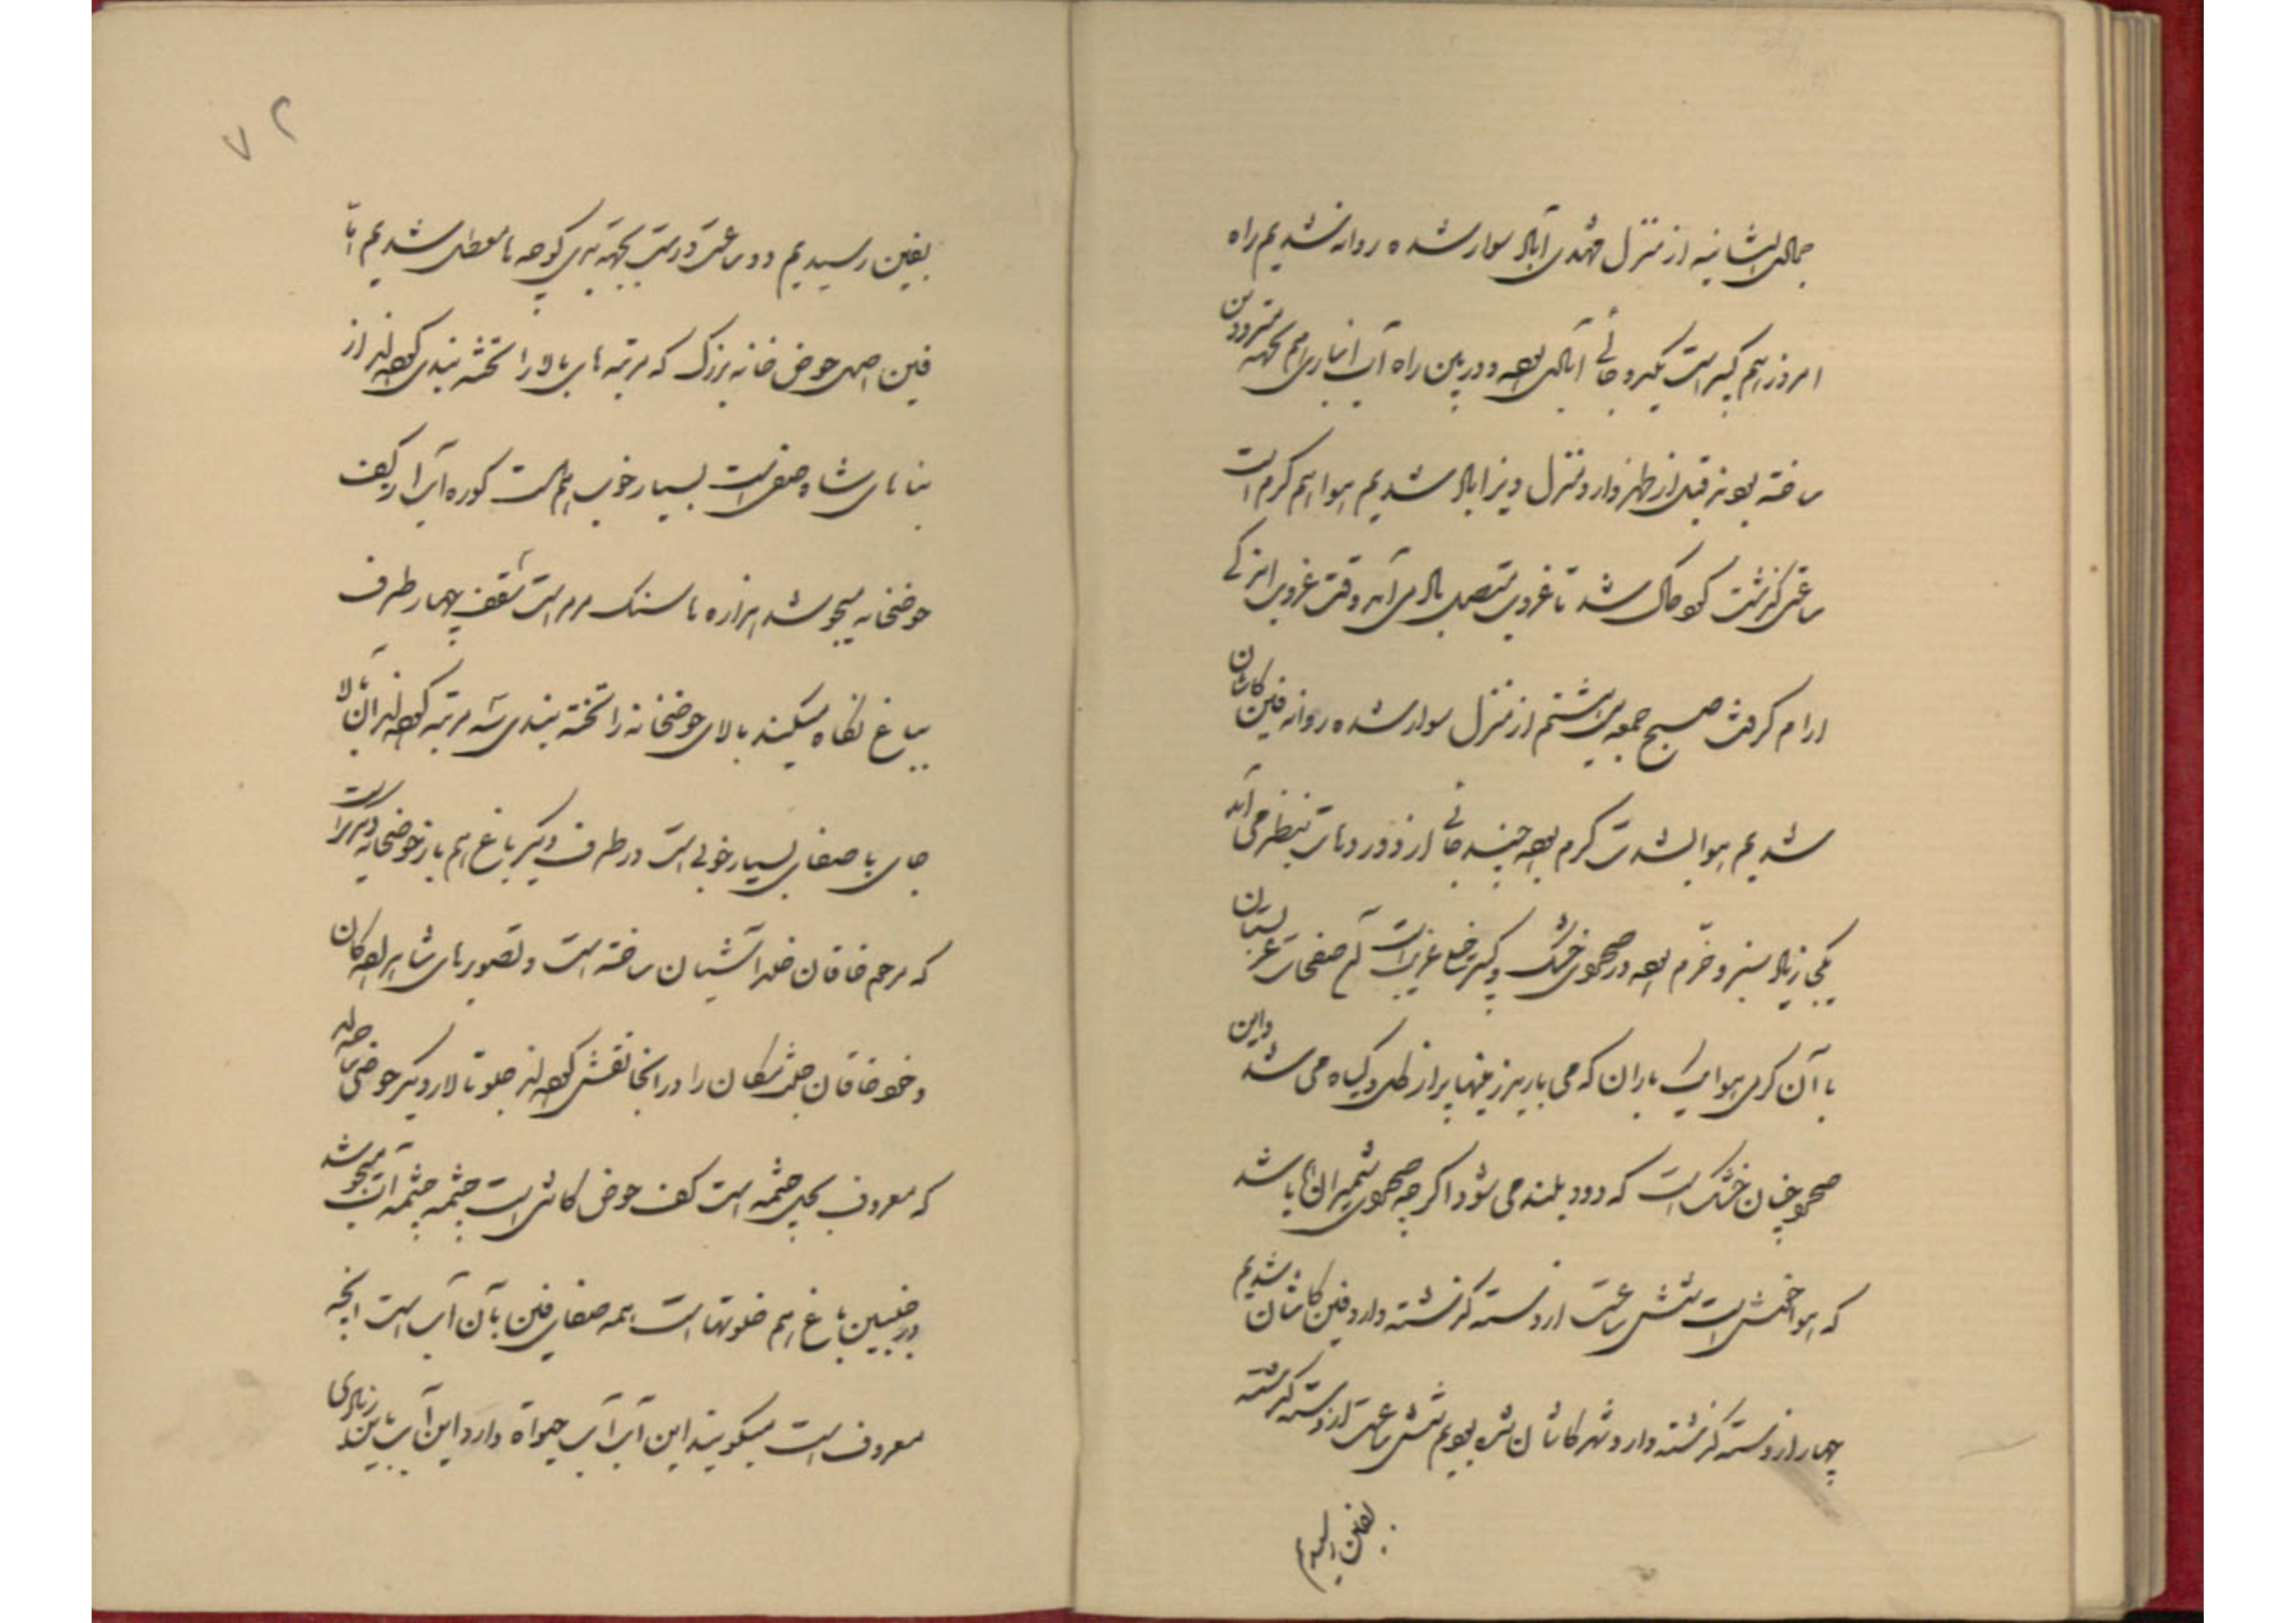 جمادی الثانیه از منزل مهدی آباد سوار شده روانه شدیم راه
امروز هم کبیر است یکی دو جائی آبادی بوده و در بین راه آب انباری هم بجهته مترددین
ساخته بودند قبل از ظهر وارد منزل آباد شدیم هوا هم گرم است
ساعتی گذشت گرد و خاک شد تا غروب متصل باد می آمد وقت غروب اندکی
آرام گرفت صبح جمعه بیستم از منزل سوار شده روانه فین کاشان
شدیم هوا بشدت گرم بوده چند جائی از دور دهات بنظر می آید
زیاد سبز و خرم بوده در صحرای خشک وضع غریبی است صفحات عربستان
با آن گرمی هوا باران که می بارید زمینها پر از گل و گیاه می شد و این
صحرا چنان خشک است که دود بلند می شود اگر چه صحرای شمیران ها باشد
که هوا خوش است شش ساعت از دسته گذشته وارد فین کاشان شدیم
چهار از دسته گذشته وارد شهر کاشان شده بودیم شش ساعت از دسته گذشته
بفین رسیدیم
۷۲
بفین رسیدیم دو ساعت درست بجهته کوچه ها معطل شدیم اما
فین اصل حوض خانه بزرگ که مرتبه های بالا را تخته بندی کرده اند از
بناهای شاه صفی است بسیار خوب هم است کوره آب از کف
حوضخانه میجوشد ازاره ها سنگ مرمر است سقف چهار طرف
بباغ نگاه میکند بالای حوضخانه را تخته بندی سه مرتبه کرده اند آن بالا
جای با صفای بسیار خوبی است در طرف دیگر باغ هم باز حوضخانه دیگر است
که مرحوم خاقان خلد آشیان ساخته است و تصویرهای شاهزادهگان
و خود خاقان را در آنجا نقش کرده اند جلو تالار دیگر حوضی ساخته اند
که معروف بچل چشمه است کف حوض کاشی است چشمه چشمه آب میجوشد
در جنبین باغ هم خلوتها است همه صفای فین بآن آب است آنچه
معروف است میگویند این آب آب حیوة دارد این آب باین زیادی